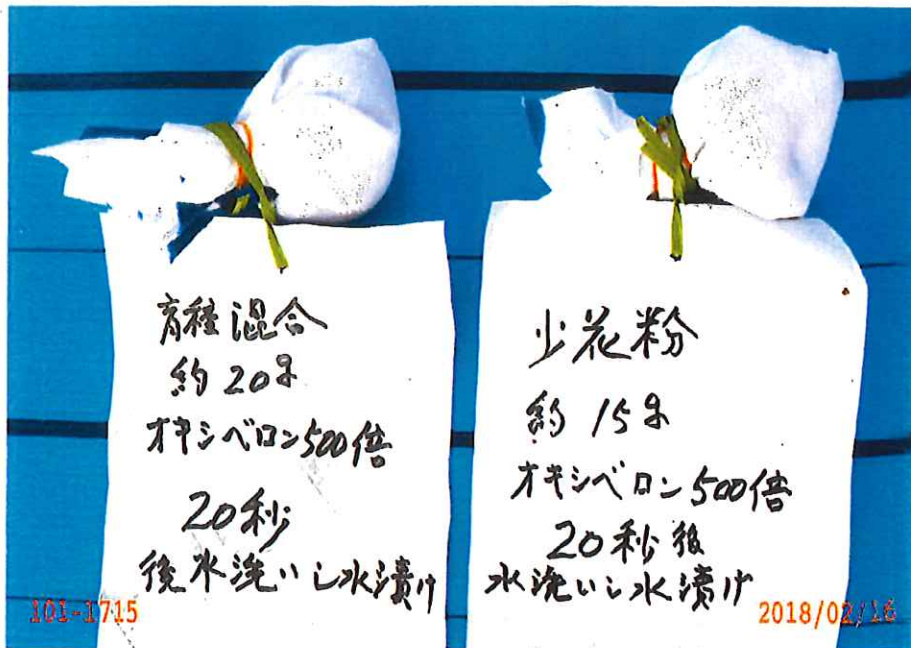 育種混合
約20g
オキシベロン500倍
20秒
後水洗いし水漬け
少花粉
約15g
オキシベロン500倍
20秒後
水洗いし水漬け
101-1715
2018/02/16